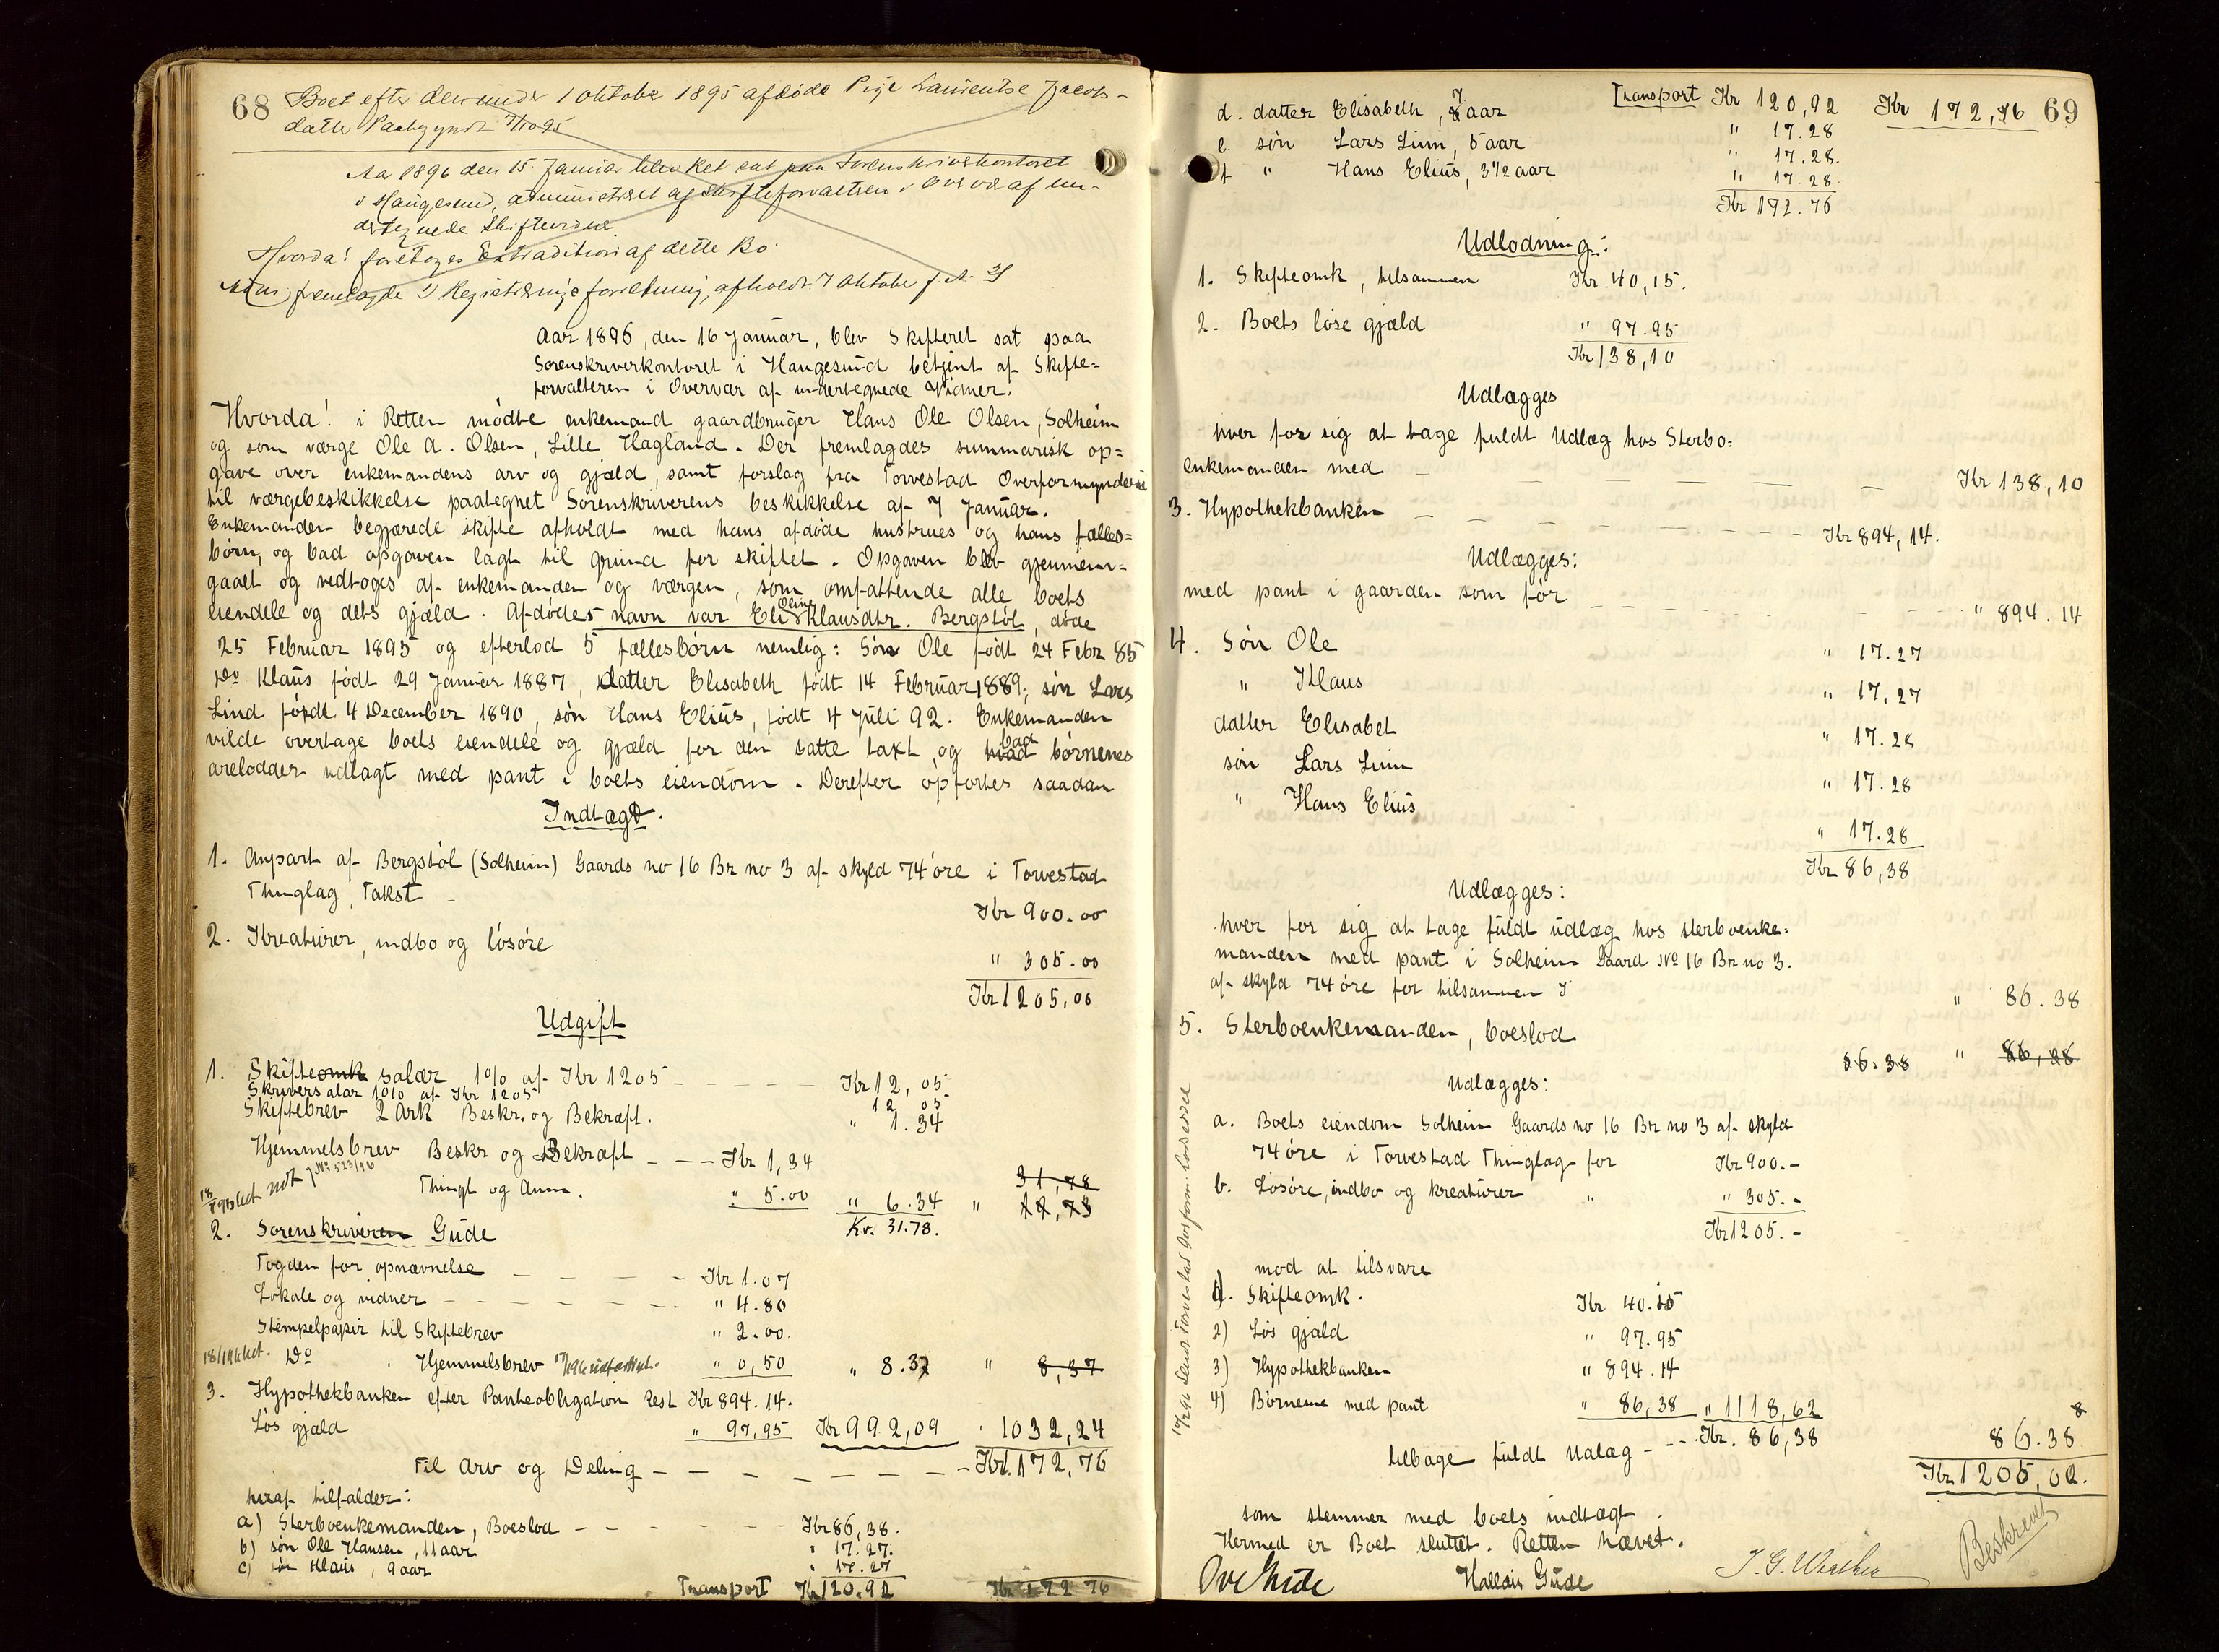 68
Boet efter den under 1 Oktober 1895 afdøde Pige Laurentse Jacobs-
datter Paabegyndt 7/10 95
Aar 1896 den 15 Januar blev Ret sat paa Sorenskriverkontoret
i Haugesund, administreret af Skifteforvalteren i Overvær af un-
dertegnede Skiftevidner.
Hvorda! foretoges Extradition af dette Bo.
fremlagde 1) Registreringsforretning, afholdt 7 Oktober f. A.
Aar 1896, den 16 Januar, blev Skifteret sat paa
Sorenskriverkontoret i Haugesund betjent af Skifte=
forvalteren i Overvær af undertegnede Vidner.
Hvorda! i Retten mødte enkemand gaardbruger Hans Ole Olsen, Solheim
og som værge Ole A. Olsen, Lille Hagland. Der fremlagdes summarisk op=
gave over enkemandens arv og gjæld, samt forslag fra Torvestad Overformynderi
til værgebeskikkelse paategnet Sorenskriverens beskikkelse af 7 Januar.
Enkemanden begjærede skifte afholdt med hans afdøde hustrues og hans fælles=
børn, og bad opgaven lagt til grund for skiftet. Opgaven blev gjennem-
gaaet og vedtoges af enkemanden og værgen, som omfattende alle boets
eiendele og dets gjæld. Afdødes navn var Eli Klausdtr. Bergstøl, døde
25 Februar 1895 og efterlod 5 fællesbørn nemlig: Søn Ole født 24 Febr 85
Do Klaus født 29 Januar 1887, datter Elisabeth født 14 Februar 1889, søn Lars
Lind født 4 December 1890, søn Hans Elius, født 4 Juli 92. Enkemanden
vilde overtage boets eiendele og gjæld for den satte taxt, og bad børnenes
arelodder udlagt med pant i boets eiendom. Derefter opførtes saadan
Indtægt.
1. Anpart af Bergstøl (Solheim) Gaards no 16 Br no 3 af skyld 74 øre i Torvestad
Thinglag, Takst Kr 900.00
2. Kreaturer, indbo og løsøre " 305.00
Kr 1205,00
Udgift
1. Skifteomk salær 1% af Kr 1205 Kr 12,05
Skriversalær 1% af Kr 1205 12 05
Skiftebrev 2 Ark Beskr. og Bekræft. " 1.34
Hjemmelsbrev Beskr og Bekræft Kr 1,34
Thingl og Anm. " 5.00 " 6.34 "
31,78
Kr. 31.78.
2. Sorenskriveren Gude
Fogden for opnævnelse Kr 1.07
Lokale og vidner " 4.80
Stempelpapir til Skiftebrev " 2.00.
Do " Hjemmelsbrev " 0,50 " 8.37 " 8,37
3. Hypothekbanken efter Panteobligation Rest Kr 894.14.
Løs gjæld " 97,95 Kr 992,09 " 1032,24
Til Arv og Deling Kr 172,76
heraf tilfalder:
a) Sterboenkemanden, Boeslod Kr 86,38.
b) søn Ole Hansen, 11 aar " 17.27.
c) søn Klaus, 9 aar " 17.27
Transport Kr 120.92 Kr 172 76
69
Transport Kr 120,92 Kr 172,76
d. datter Elisabeth, 7 aar " 17.28
e. søn Lars Linn, 5 aar " 17.28.
f " Hans Elius, 3 1/2 aar " 17.28.
Kr 172.76
Udlodning:
1. Skifteomk, tilsammen Kr 40,15.
2. Boets løse gjæld " 97.95
Kr 138,10
Udlægges
hver for sig at tage fuldt Udlæg hos Sterbo=
enkemanden med Kr 138,10
3. Hypothekbanken Kr 894,14.
Udlægges:
med pant i gaarden som før " 894.14
4. Søn Ole " 17.27
" Klaus " 17.27
datter Elisabet " 17.28
søn Lars Linn " 17.28
" Hans Elius " 17.28
Kr 86,38
Udlægges:
hver for sig at tage fuldt udlæg hos sterboenke=
manden med pant i Solheim Gaard No 16 Br no 3.
af skyld 74 øre for tilsammen " 86.38
5. Sterboenkemanden, boeslod 86.38 "
Udlægges:
a. Boets eiendom Solheim Gaards no 16 Br no 3 af skyld
74 øre i Torvestad Thinglag for Kr 900.-
b. Løsøre, indbo og kreaturer " " 305.-
Kr 1205.-
mod at tilsvare
1). Skifteomk. Kr 40.15
2) Løs gjæld " 97.95
3) Hypothekbanken " 894.14
4) Børnene med pant " 86,38 " 1118,62
tilbage fuldt Udlæg Kr. 86,38 86.38
Kr 1205,00.
som stemmer med boets indtægt.
Hermed er Boet sluttet. Retten hævet.
Ove Gude Halldis Gude
Beskrevet